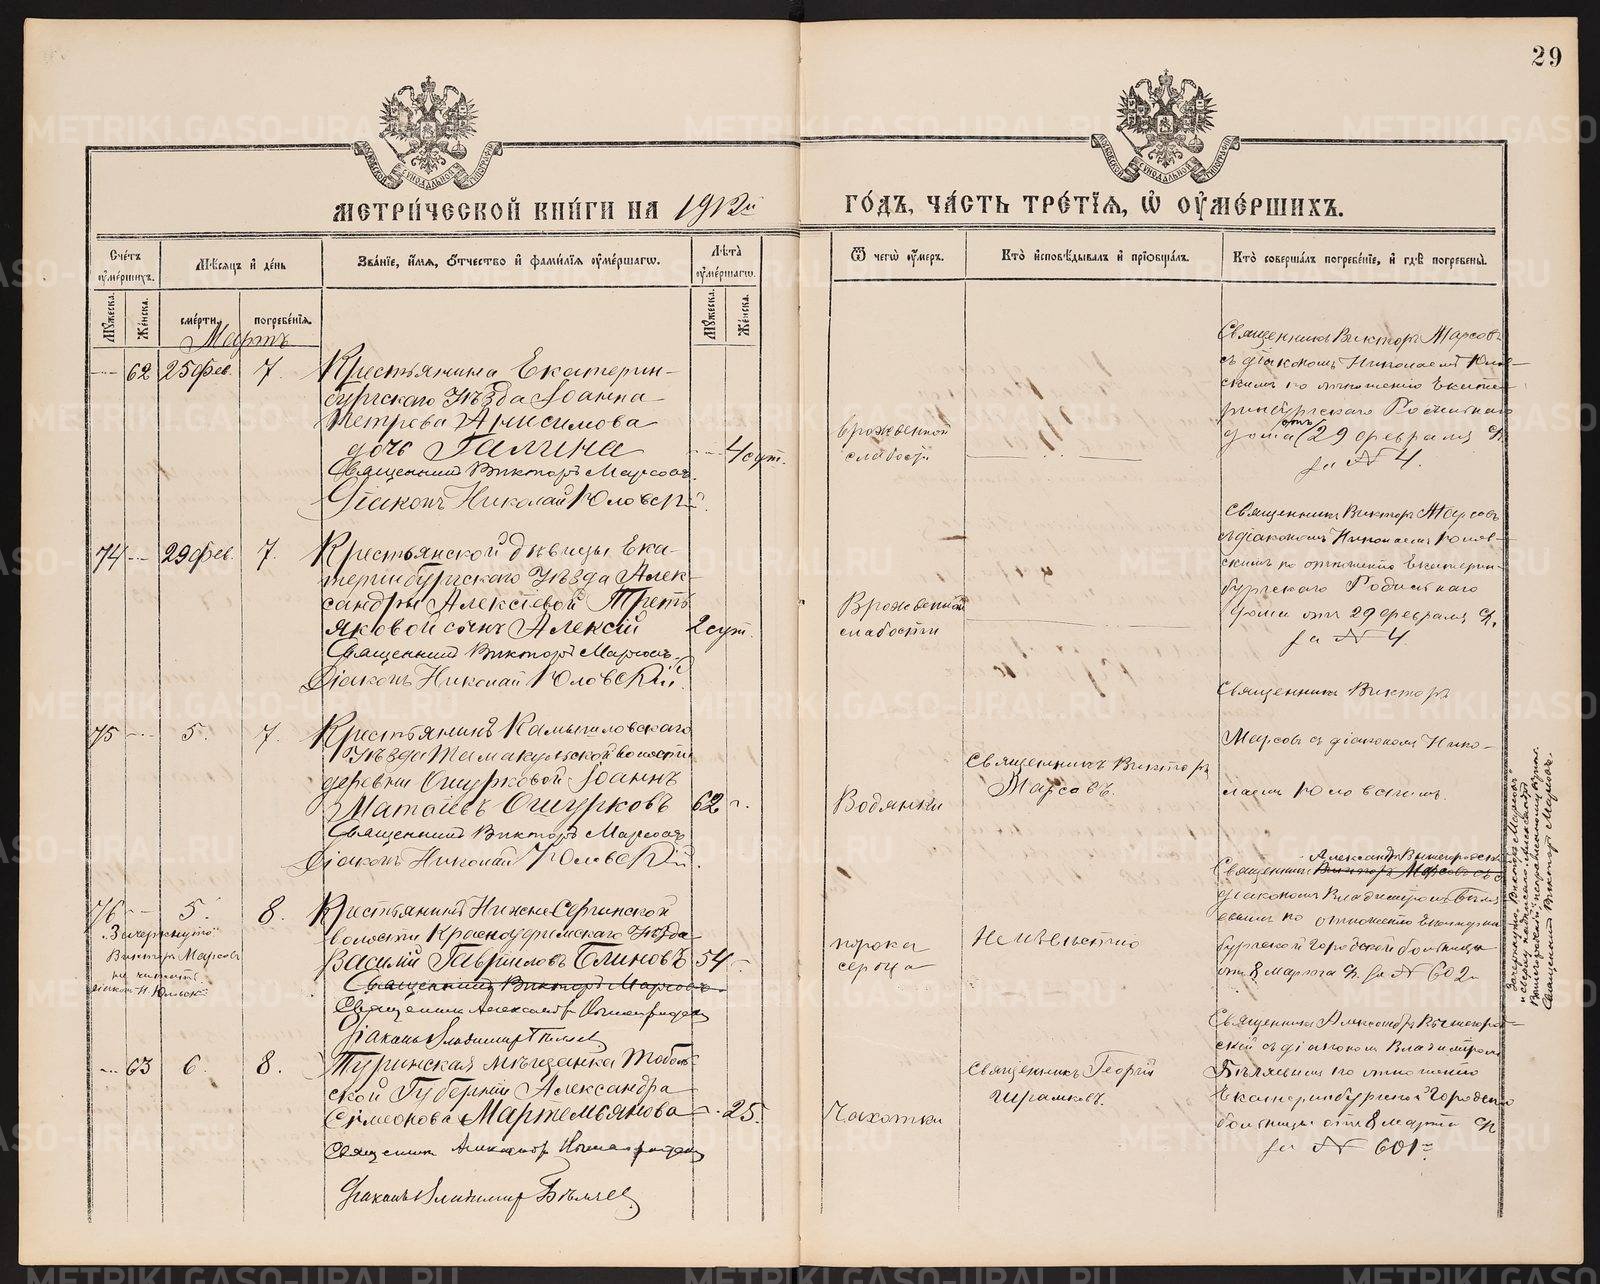 29
МЕТРИ́ЧЕСКОЙ КНИ́ГИ НА 1912й ГО́ДЪ, ЧА́СТЬ ТРЕ́ТЇЯ, Ѡ҆ ОУ҆МЕ́РШИХЪ.
Сче́тъ оу҆ме́ршихъ.
Мꙋ́жеска.
Же́нска.
Мѣ́сѧцъ и҆ де́нь
сме́рти.
погребе́нїѧ.
Зва́нїе, и҆́мѧ, ѻ҆́тчество и҆ фами́лїѧ оу҆ме́ршагѡ.
Лѣ́та̀ оу҆ме́ршагѡ.
Мꙋ́жеска.
Же́нска.
Ѿ чегѡ̀ оу҆́меръ.
Кто̀ и҆сповѣ́дывалъ и҆ прїѡбща́лъ.
Кто̀ соверша́лъ погребе́нїе, и҆ гдѣ̀ погребены̀.
Мартъ
62 25 фев. 7.
Крестьянина Екатерин-
бургскаго Уѣзда Іоанна
Петрова Анисимова
дочь Галина
4 сут.
Священникъ Викторъ Марсовъ.
Діаконъ Николай Юловскій.
врожденной
слабости
Священникъ Викторъ Марсовъ
съ діакономъ Николаемъ Юлов-
скимъ по отношенію Екате-
ринбургскаго Родильнаго
дома отъ 29 февраля с.г.
за № 4.
74 29 фев. 7.
Крестьянской дѣвицы Ека-
теринбургскаго Уѣзда Алек-
сандры Алексіевой Треть
яковой сынъ Алексій
2 сут.
Священникъ Викторъ Марсовъ.
Діаконъ Николай Юловскій.
Врожденной
слабости
Священникъ Викторъ Марсовъ
съ діакономъ Николаемъ Юлов-
скимъ по отношенію Екатерин-
бургскаго Родильнаго
дома отъ 29 февраля с.г.
за № 4.
75 5. 7.
Крестьянинъ Камышловскаго
Уѣзда Тамакульской волости
деревни Ошурковой Іоаннъ
Матѳіевъ Ошурковъ
62 г.
Священникъ Викторъ Марсовъ
Діаконъ Николай Юловскій.
Водянки
Священникъ Викторъ
Марсовъ.
Священникъ Викторъ
Марсовъ съ діакономъ Нико-
лаемъ Юловскимъ.
76 5. 8.
„Зачеркнуто“
Викторъ Марсовъ
не читать.
діаконъ Н. Юловск.
Крестьянинъ Нижне-Сергинской
волости Красноуфимскаго Уѣзда
Василій Гавриловъ Блиновъ
54
Священникъ Викторъ Марсовъ.
Священникъ Александръ Вышегородск
Діаконъ Владимиръ Бѣляев
порока
сердца
Неизвѣстно
Александръ Вышегородскій
Священникъ Викторъ Марсовъ съ
діакономъ Владиміромъ Бѣля
евымъ по отношенію Екатерин
бургской городской больницы
отъ 8 марта с.г. за № 602
63 6. 8.
Туринская мѣщанка Тоболь-
ской Губерніи Александра
Симеонова Мартемьянова
25.
Священникъ Александръ Вышегородск
Діаконъ Владимир Бѣляев
Чахотки
Священникъ Георгій
Священникъ Александръ Вышегород-
скій съ діакономъ Владиміромъ
Бѣляевымъ по отношенію
Екатеринбургской Городской
больницы отъ 8 марта с.г.
за № 601
Зачеркнуто „Викторъ Марсовъ“
и сверху надписано „Александръ
Вышегородскій“
Священникъ Викторъ Марсовъ.